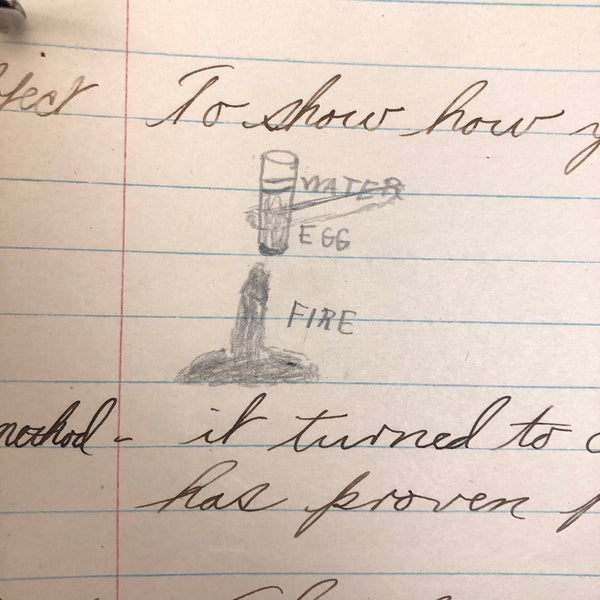 ject To show how y
WATER
EGG
FIRE
method - it turned to
has proven